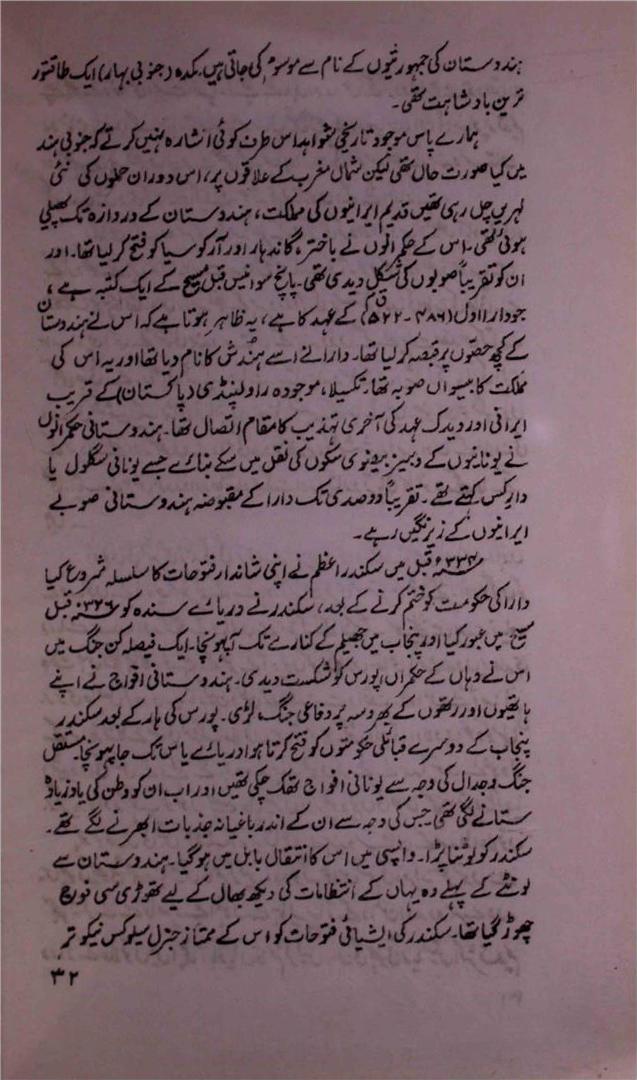 ہندوستان کی جمہورتیوں کے نام سے موسوم کی جاتی ہیں۔ مگدھ (جنوبی بہار) ایک طاقتور
ترین بادشاہت تھی۔
ہمارے پاس موجود تاریخی شواہد اس طرف کوئی اشارہ نہیں کرتے کہ جنوبی ہند
میں کیا صورت حال تھی لیکن شمال مغرب کے علاقوں پر، اس دوران حملوں کی نئی
لہریں چل رہی تھیں قدیم ایرانیوں کی مملکت، ہندوستان کے دروازہ تک پھیلی
ہوئی تھی۔ اس کے حکمرانوں نے باختر، گاندہار اور آرکوسیا کو فتح کرلیا تھا۔ اور
ان کو تقریباً صوبوں کی شکل دیدی تھی۔ پانچ سو انیس قبل مسیح کے ایک کتبہ سے،
جو دارا اول (۴۸۶-۵۲۲ ق م) کے عہد کا ہے، یہ ظاہر ہوتا ہے کہ اس نے ہندوستان
کے کچھ حصّوں پر قبضہ کرلیا تھا۔ دارا نے اسے ہندُش کا نام دیا تھا اور یہ اس کی
مملکت کا بیسواں صوبہ تھا۔ ٹکسیلا، موجودہ راولپنڈی (پاکستان) کے قریب
ایرانی اور ویدک عہد کی آخری تہذیب کا مقام اتصال تھا۔ ہندوستانی حکمرانوں
نے یونانیوں کے دبیز بیدنوی سکوں کی نقل میں سکے بنائے جسے یونانی سگلول یا
دارکس کہتے تھے۔ تقریباً دو صدی تک دارا کے مقبوضہ ہندوستانی صوبے
ایرانیوں کے زیر نگیں رہے۔
۳۳۴؁ء قبل میں سکندر اعظم نے اپنی شاندار فتوحات کا سلسلہ شروع کیا
دارا کی حکومت کو ختم کرنے کے بعد، سکندر نے دریائے سندھ کو ۳۲۶؁ قبل
مسیح میں عبور کیا اور پنجاب میں جھیلم کے کنارے تک آپہونچا۔ ایک فیصلہ کن جنگ میں
اس نے وہاں کے حکمراں پورس کو شکست دیدی۔ ہندوستانی افواج نے اپنے
ہاتھیوں اور رتھوں کے بھروسہ پر دفاعی جنگ لڑی۔ پورس کی ہار کے بعد سکندر
پنجاب کے دوسرے قبائلی حکومتوں کو فتح کرتا ہوا دریائے بیاس تک جاپہونچا۔ مستقل
جنگ و جدال کی وجہ سے یونانی افواج تھک چکی تھیں اور اب ان کو وطن کی یاد زیادہ
ستانے لگی تھی جس کی وجہ سے ان کے اندر باغیانہ جذبات ابھرنے لگے تھے۔
سکندر کو لوٹنا پڑا۔ واپسی میں اس کا انتقال بابل میں ہوگیا۔ ہندوستان سے
لوٹنے کے پہلے وہ یہاں کے انتظامات کی دیکھ بھال کے لیے تھوڑی سی فوج
چھوڑ گیا تھا۔ سکندر کی ایشیائی فتوحات کو اس کے ممتاز جنرل سیلوکس نیکوٹر
۳۲